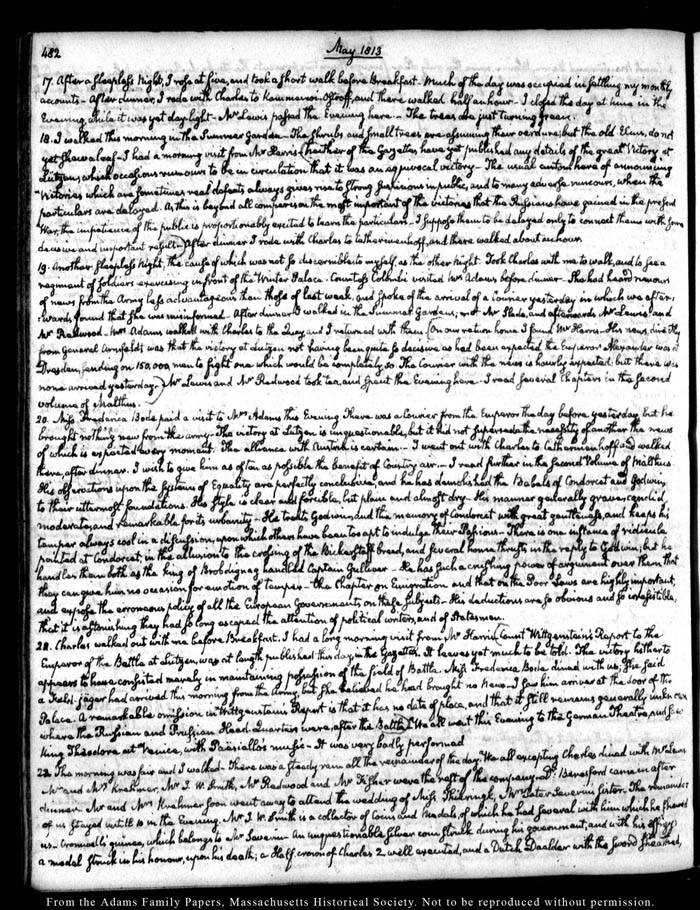 482 May 1813
17. After a sleepless Night, I rose at five, and took a short walk before Breakfast. Much of the day was occupied in settling my monthly
accounts — After dinner, I rode with Charles to Kammenoi-Ostroff, and there walked half an hour. I closed the day at nine in the
Evening, while it was yet day-light. Mr Lewis passed the Evening here. The trees are just turning green.
18. I walked this morning in the Summer Garden. The shrubs, and small trees are assuming their verdure; but the old Elms, do not
yet shew a leaf. I had a morning visit from Mr Harris (neither of the Gazettes have yet published any details of the great Victory at
Lützen, which occasions rumours to be in circulation that it was an equivocal victory — The usual custom here of announcing
Victories which are sometimes real defeats always gives rise to strong suspicions in public, and to many adverse rumours, when the
particulars are delayed. As this is beyond all comparison the most important of the victories that the Russians have gained in the present
War, the impatience of the public is proportionably excited to learn the particulars. I suppose them to be delayed only to connect them with some
decisive and important result — After dinner I rode with Charles to Catherinenhoff, and there walked about an hour.
19. Another sleepless Night, the cause of which was not so discernible to myself, as the other Night. Took Charles with me to walk, and to see a
regiment of Soldiers exercising in front of the Winter Palace. Countess Colombi visited Mrs Adams before dinner. She had heard rumours
of news from the Army less advantageous than those of last week, and spoke of the arrival of a Courier yesterday in which we after-
wards found that she was misinformed — After dinner I walked in the Summer Gardens; met Mr Slade, and afterwards Mr Lewis, and
Mr Redwood — Mrs Adams walked with Charles to the Quay, and I returned with them (on our return home I found Mr Harris. His news, directly
from General Armfeldt was that the victory at Lutzen not having been quite so decisive as had been expected the Emperor Alexander was at
Dresden, sending on 150,000 men to fight one which would be completely so. The Courier with the news is hourly expected; but there was
none arrived yesterday.) Mr Lewis and Mr Redwood took tea, and spent the Evening here. I read several Chapters in the second
volume of Malthus.
20. Miss Frederica Bode paid a visit to Mrs Adams this Evening. There was a Courier from the Emperor the day before yesterday but he
brought nothing new from the army. The victory at Lutzen is unquestionable, but it did not supersede the necessity of another the news
of which is expected every moment. The alliance with Austria is certain. — I went out with Charles to Catherinenhoff and walked
there, after dinner. I wish to give him as often as possible the benefit of Country air. — I read further in the second Volume of Malthus.
His observations upon the Systems of Equality are perfectly conclusive, and he has demolished the Babels of Condorcet and Godwin,
to their uttermost foundations. His style is clear and forcible, but plain and almost dry. His manner generally grave, candid,
moderate, and remarkable for its urbanity. He treats Godwin, and the memory of Condorcet with great gentleness, and keeps his
temper always cool in a discussion, upon which others have been too apt to indulge their Passions. There is one instance of ridicule
pointed at Condorcet, in the allusion to the crossing of the Bickerstaff breed, and several home thrusts in the reply to Godwin; but he
handles them both as the king of Brobdignag handled Captain Gulliver — He has such a crushing power of argument over them that
they can give him no occasion for emotion of temper — the Chapter on Emigration and that on the Poor Laws are highly important,
and expose the erroneous policy of all the European Governments on these subjects — His deductions are so obvious and so irresistible,
that it is astonishing they had so long escaped the attention of political writers, and of Statesmen.
21. Charles walked out with me before Breakfast. I had a long morning visit from Mr Harris (Count Wittgenstein's Report to the
Emperor of the Battle at Lutzen, was at length published this day, in the Gazettes. It leaves yet much to be told. The victory hitherto
appears to have consisted merely in maintaining possession of the field of Battle. Miss Frederica Bode dined with us; She said
a Feld-jäger had arrived this morning from the Army, but she believed he had brought no News. I saw him arrive at the door of the
Palace. A remarkable omission in Wittgenstein's Report is that it has no date of place, and that it still remains generally unknown
where the Russian and Prussian Head-Quarters were, after the Battle.) We all went this Evening to the German Theatre, and saw
King Theodore at Venice, with Paesiello's music — It was very badly performed
22. The morning was fair and I walked. There was a steady rain all the remainder of the day. We all excepting Charles dined with Mr Lewis
Mr and Mrs Krehmer, Mr J. W. Smith, Mr Redwood and Mr Fisher were the rest of the company — Dr Beresford came in after
dinner. Mr and Mrs Krehmer soon went away to attend the wedding of Miss Severin's Sister. The remainder
of us stayed untill 10 in the Evening. Mr J. W. Smith is a collector of Coins and Medals, of which he had several with him which he shewed
us. Cromwell's guinea, which belongs to Mr Severin. An unquestionable Silver coin struck during his government, and with his effigy;
a medal struck in his honour, upon his death; a Half-crown of Charles 2 well executed, and a Dutch Daalder with the sword sheathed,
From the Adams Family Papers, Massachusetts Historical Society. Not to be reproduced without permission.